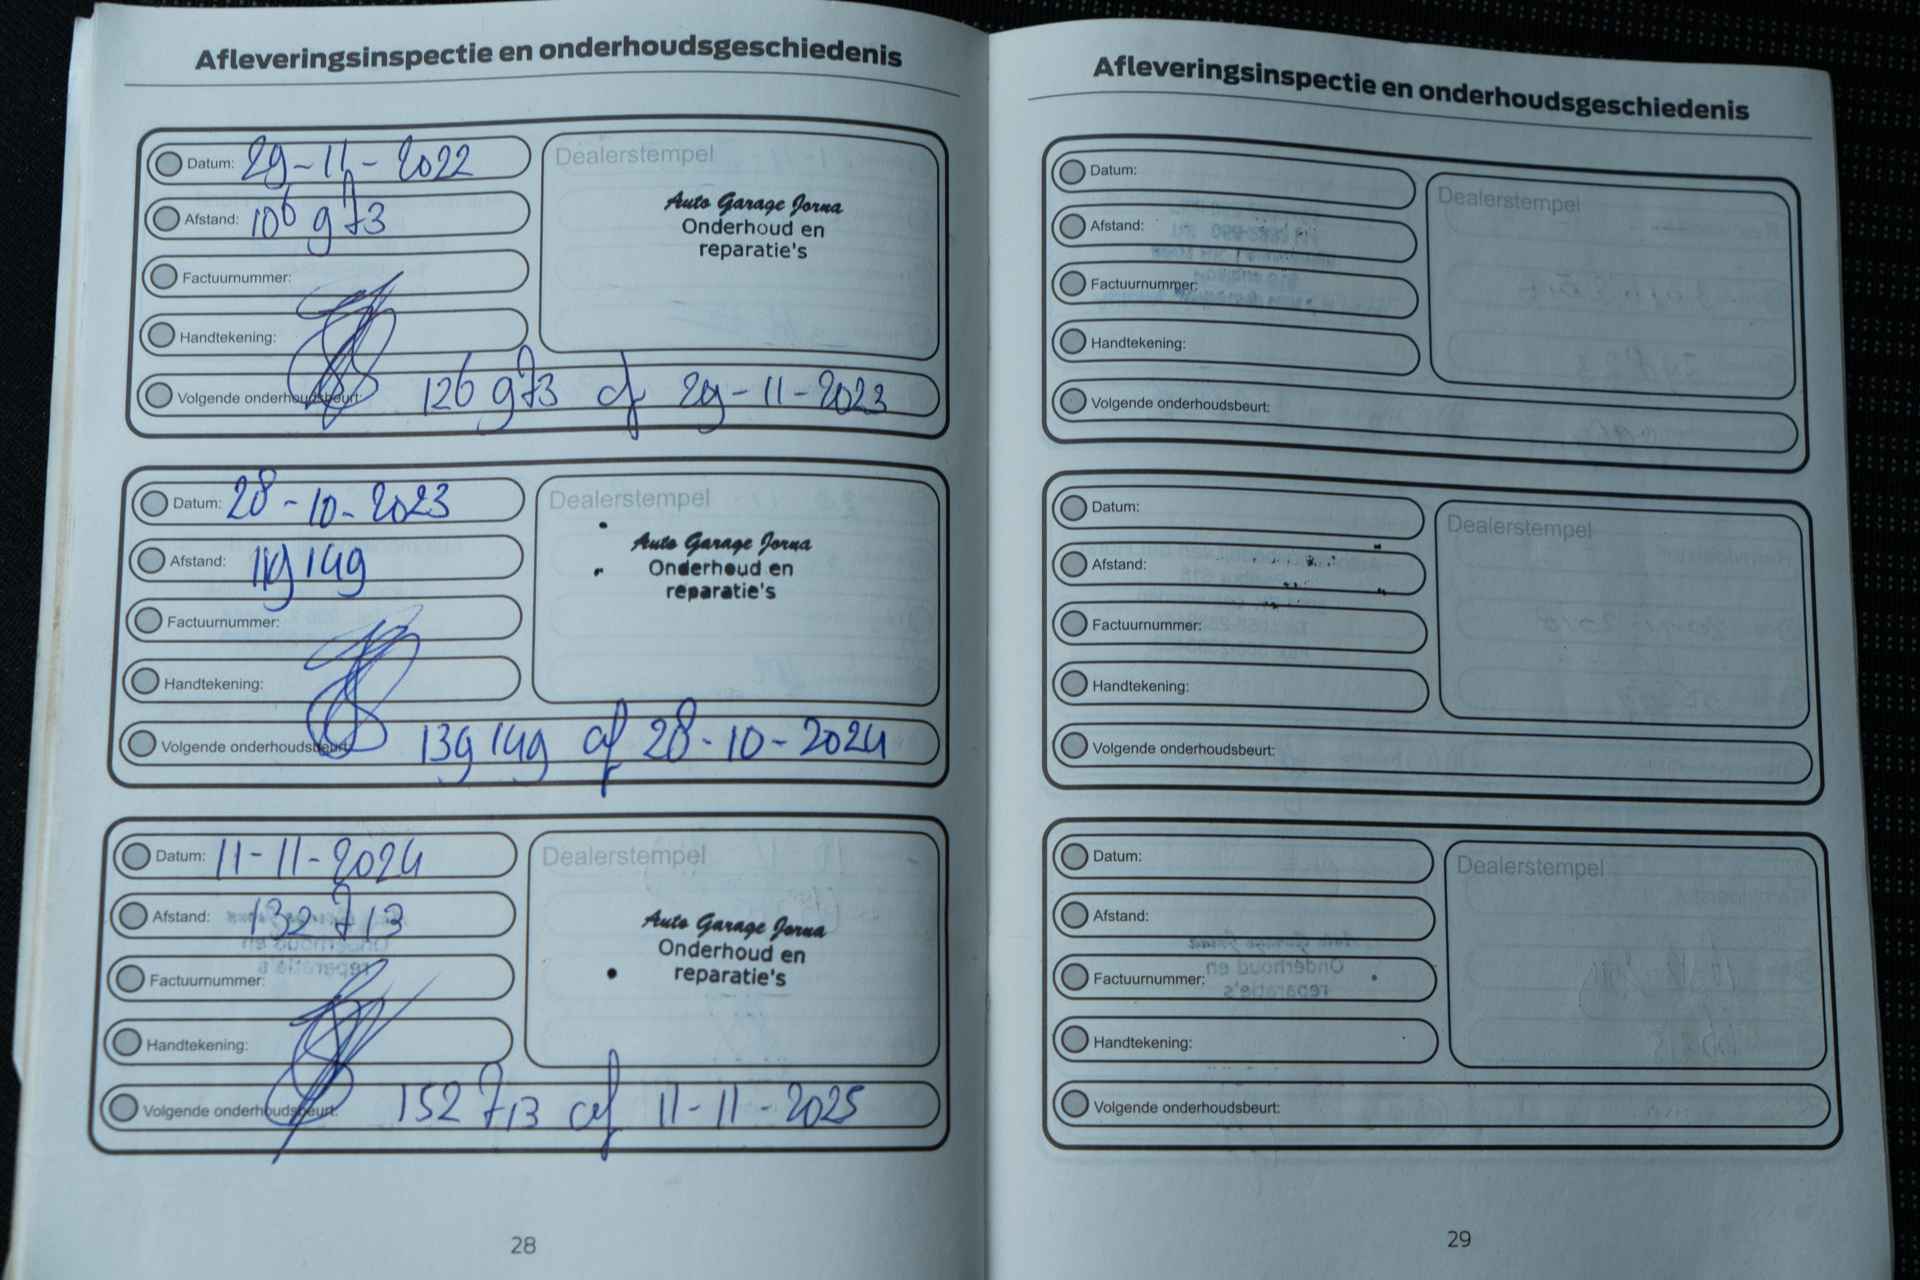 Afleveringsinspectie en onderhoudsgeschiedenis
Datum: 29-11-2022
Afstand: 106 973
Factuurnummer:
Handtekening:
Volgende onderhoudsbeurt: 126 973 of 29-11-2023
Dealerstempel
Auto Garage Jorna
Onderhoud en
reparatie's
Datum: 28-10-2023
Afstand: 119 149
Factuurnummer:
Handtekening:
Volgende onderhoudsbeurt: 139 149 of 28-10-2024
Dealerstempel
Auto Garage Jorna
Onderhoud en
reparatie's
Datum: 11-11-2024
Afstand: 132 713
Factuurnummer:
Handtekening:
Volgende onderhoudsbeurt: 152 713 of 11-11-2025
Dealerstempel
Auto Garage Jorna
Onderhoud en
reparatie's
28
Afleveringsinspectie en onderhoudsgeschiedenis
Datum:
Afstand:
Factuurnummer:
Handtekening:
Volgende onderhoudsbeurt:
Dealerstempel
Datum:
Afstand:
Factuurnummer:
Handtekening:
Volgende onderhoudsbeurt:
Dealerstempel
Datum:
Afstand:
Factuurnummer:
Handtekening:
Volgende onderhoudsbeurt:
Dealerstempel
29